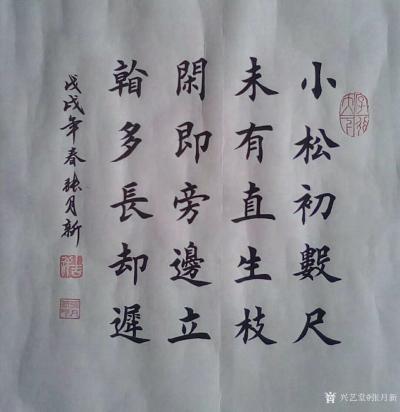 小松初數尺
未有直生枝
閑即旁邊立
看多長却遲
戊戌年春張月新
兴艺堂@张月新